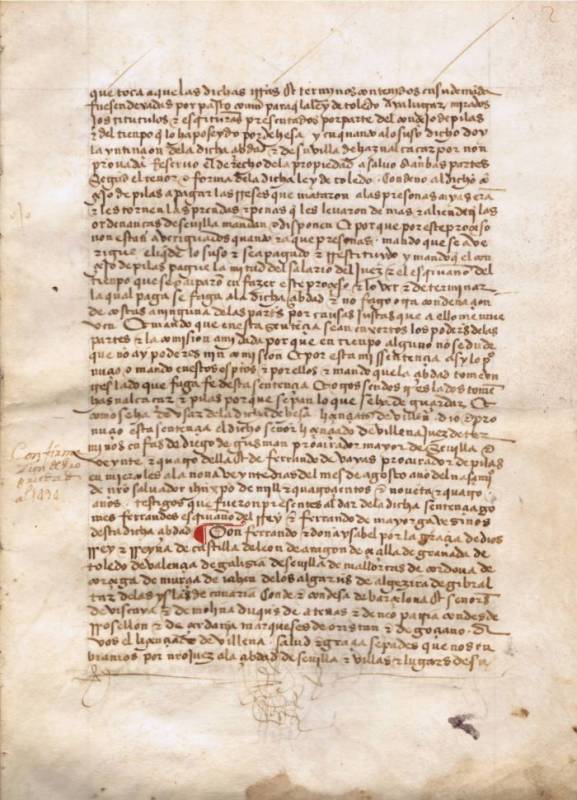 que toca a que las dichas trrās & terminos contenidos en su demāda
fuesen dexadas por pasto comū para q̄ la ley de toledo aya lugar mirados
los titulos & esc̄pturas presentados por parte del concejo de pilas
& del tienpo q̄ lo ha poseydo por dehesa y en quanto a lo suso dicho doy
la yntinçion dela dicha çibdad & de su villa de haznalcaçar por non
prouada Reseruo el derecho de la propiedad a saluo a anbas partes
Segūd el tenor & forma dela dicha ley de toledo Condeno al dicho cō
çejo de pilas a pagar las rreses que mataron a las presonas cuyas erā
& les tornen las prendas & penas q̄ les leuaron de mas & aliende q̄ las
ordenanças de seuilla mandan & disponen E porque por este proçeso
non estan aueriguados quanto & a que presonas mando que se aue
rigue el q̄ de lo suso & sea pagado & rrestituydo y mando q̄ el con
çejo de pilas pague la mitad del salario del Juez & el escriuano del
tienpo que se ocuparon en fazer este proçeso & lo ver & determinar
la qual paga se faga a la dicha çibdad & no fago otra condenaçion
de costas a ninguna delas partes por causas justas que a ello me mue
uen E mando que en esta sentēçia sean enxertos los poderes delas
partes & la comision a mi dada por que en tienpo alguno no se dude
que no ay poderes nin comision E por esta mi sentençia asy lo pͦ
nuçio & mando en estos escriptos & por ellos & mando que la çibdad tome un
treslado que faga fe desta sentençia E otros sendos treslados tomē
haznalcaçar & pilas por que sepan lo que se ha de guardar E
como se ha de vsar dela dicha dehesa liçençiatus de villena dio & pro
nuçio esta sentençia el dicho señor liçençiado de villena Juez de ter
minos en faz de diego de gusman procurador mayor de Seuilla &
veynte & quatro della & de ferrando de vayas procurador de pilas
en miercoles a la nona veynte dias del mes de agosto año del nasçimiº
de nrō saluador ihū xpō de mill & quatroçientos & nouēta & quatro
años testigos que fueron presentes al dar dela dicha sentençia go
mes ferrandes escriuano del Rey & ferrando de mayorga vesinos
desta dicha çibdad ¶ Don ferrando & doña ysabel por la graçia de dios
Rey & Reyna de castilla de leon de aragon de çeçilia de granada de
toledo de valençia de galisia de seuilla de mallorcas de cordoua de
corçega de murçia de iahen delos algarues de algezira de gibral
tar delas yslas de canaria Conde & condesa de barçelona & señores
de viscaya & de molina duques de atenas & de neopatria condes de
Rosellon & de çerdania marqueses de oristan & de goçiano A
vos el liçençiado de villena salud & graçia sepades que nos en
biamos por nrō juez a la çibdad de seuilla & villas & lugares de su
Confirma
çion
1494